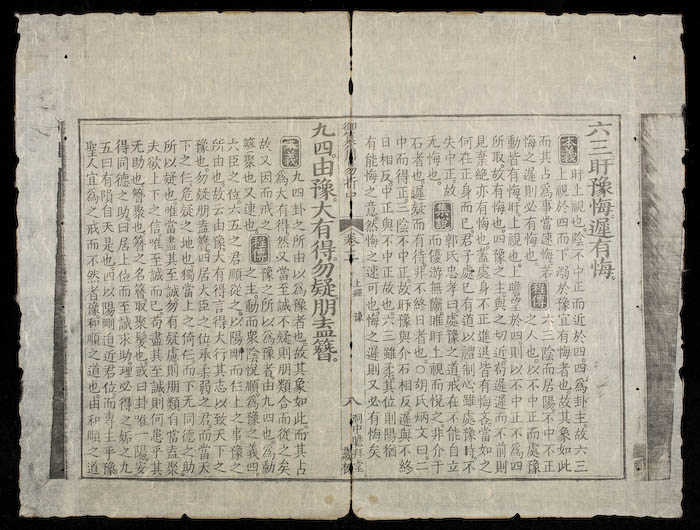 六三盱豫悔遲有悔
本義
盱上視也陰不中正而近於四四爲卦主故六三
上視於四而下溺於豫宜有悔者也故其象如此
而其占爲事當速悔若
悔之遲則必有悔也
程傳
六三陰而居陽不中不正
之人也以不中正而處豫
動皆有悔盱上視也上瞻望於四則以不中正不爲四
所取故有悔也四豫之主與之切近苟遲遲而不前則
見棄絶亦有悔也蓋處身不正進退皆有悔吝當如之
何在正身而已君子處己有道以禮制心雖處豫時不
失中正故
無悔也
集說
郭氏忠孝曰處豫之道戒在不能自立
而優游無斷盱上視而悅之非介于
石者也遲疑而有待非不終日者也○胡氏炳文曰二
中而得正三陰不中正故盱豫與介石相反遲與不終
日相反中正與不中正故也六三雖柔其位則陽猶
有能悔之意然悔之速可也悔之遲則又必有悔矣
御纂周易折中
卷二
上經
豫
八
九四由豫大有得勿疑朋盍簪
本義
九四卦之所由以爲豫者也故其象如此而其占
爲大有得然又當至誠不疑則朋類合而從之矣
故又因而戒之
簪聚也又速也
程傳
豫之所以爲豫者由九四也爲動
之主動而衆陰悅順爲豫之義四
大臣之位六五之君順從之以陽剛而任上之事豫之
所由也故云由豫大有得言得大行其志以致天下之
豫也勿疑朋盍簪四居大臣之位承柔弱之君而當天
下之任危疑之地也獨當上之倚任而下无同德之助
所以疑也唯當盡其至誠勿有疑慮則朋類自當盍聚
夫欲上下之信唯至誠而已苟盡其至誠則何患乎其
无助也簪聚也簪之名簪取聚髮也或曰卦唯一陽安
得同德之助曰居上位而至誠求助理必得之姤之九
五曰有隕自天是也四以陽剛迫近君位而專主乎豫
聖人宜爲之戒而不然者豫和順之道也由和順之道